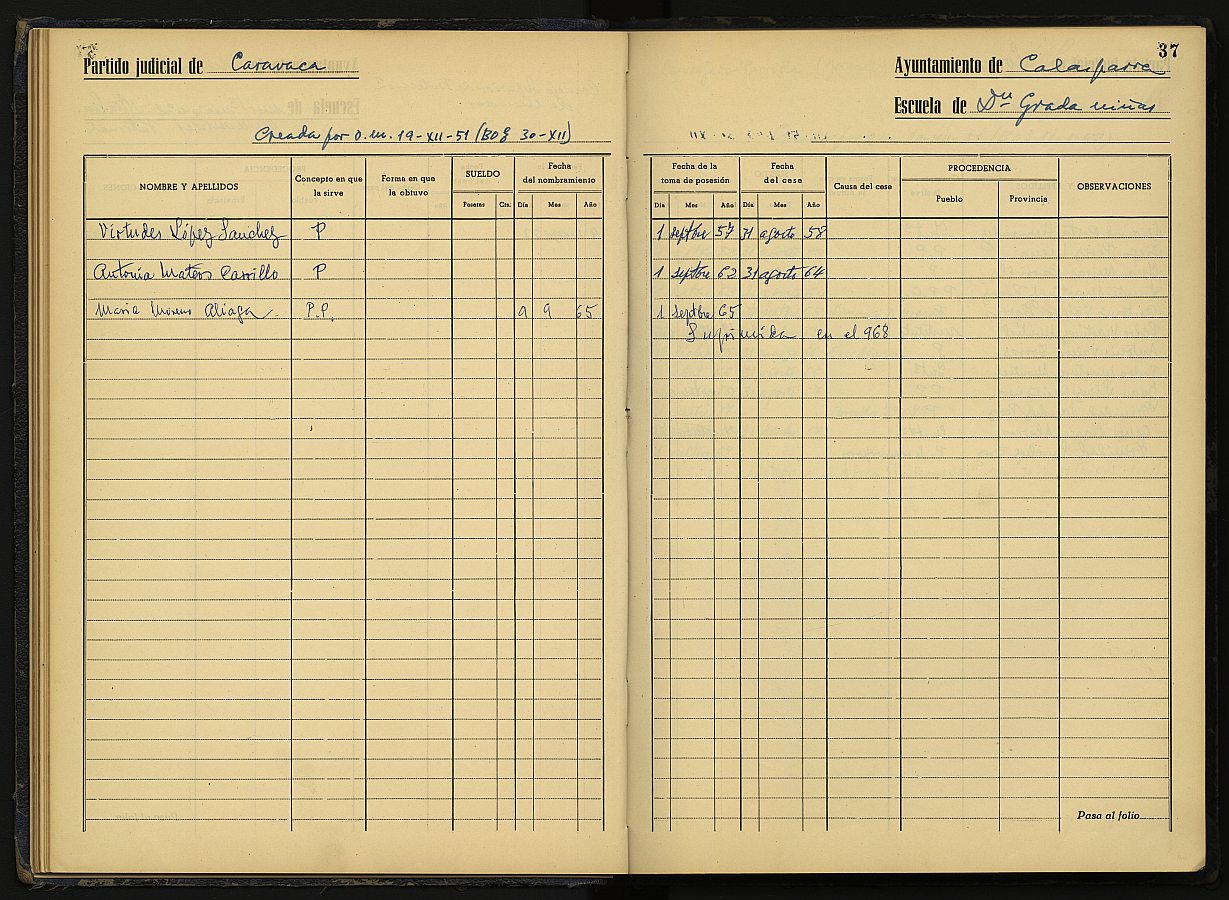 Partido judicial de Caravaca
Creada por O.M. 19-XII-51 (BOE 30-XII)
NOMBRE Y APELLIDOS Concepto en que la sirve Forma en que la obtuvo SUELDO Fecha del nombramiento
Pesetas Cts. Día Mes Año
Virtudes López Sanchez P
Antonia Mateos Carrillo P
Maria Moreno Aliaga P.P. 9 9 65
37
Ayuntamiento de Calasparra
Escuela de Dª Grada niñas
Fecha de la toma de posesión Fecha del cese Causa del cese PROCEDENCIA OBSERVACIONES
Día Mes Año Día Mes Año Pueblo Provincia
1 septbre 57 31 agosto 58
1 septbre 62 31 agosto 64
1 Septbre 65
Suprimida en el 968
Pasa al folio